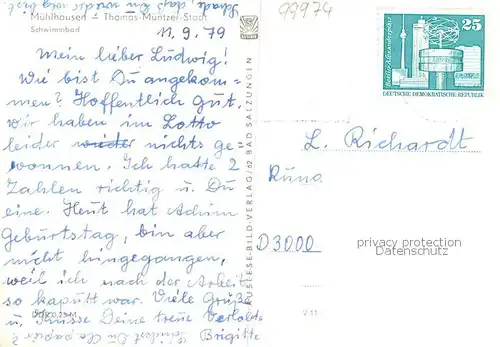 99974
Mühlhausen - Thomas-Müntzer-Stadt
Schwimmbad
11.9.79
Mein lieber Ludwig!
Wie bist Du angekom-
men? Hoffentlich gut,
wir haben im Lotto
leider wieder nichts ge-
wonnen. Ich hatte 2
Zahlen richtig u. Du
eine. Heut hat Achim
Geburtstag, bin aber
nicht hingegangen,
weil ich nach der Arbeit
so kaputt war. Viele Grüße
u. Küsse Deine treue Verlobte
Brigitte
AUSLESE-BILD-VERLAG/62 BAD SALZUNGEN
25
Berlin-Alexanderplatz
DEUTSCHE DEMOKRATISCHE REPUBLIK
L. Richardt
D3000
privacy protection
Datenschutz
V 11